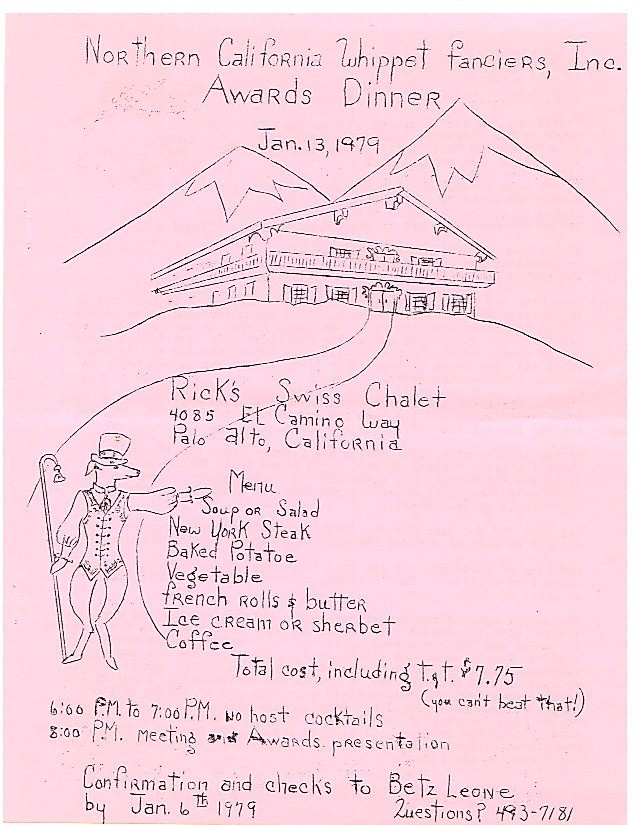 Northern California Whippet Fanciers, Inc.
Awards Dinner
Jan. 13, 1979
Rick's Swiss Chalet
4085 El Camino Way
Palo Alto, California
Menu
Soup or Salad
New York Steak
Baked Potatoe
Vegetable
French Rolls & butter
Ice cream or sherbet
Coffee
Total cost, including t.&t. $7.75
(you can't beat that!)
6:00 P.M. to 7:00 P.M. no host cocktails
8:00 P.M. Meeting and Awards presentation
Confirmation and checks to Betz Leone
by Jan. 6th 1979
Questions? 493-7181